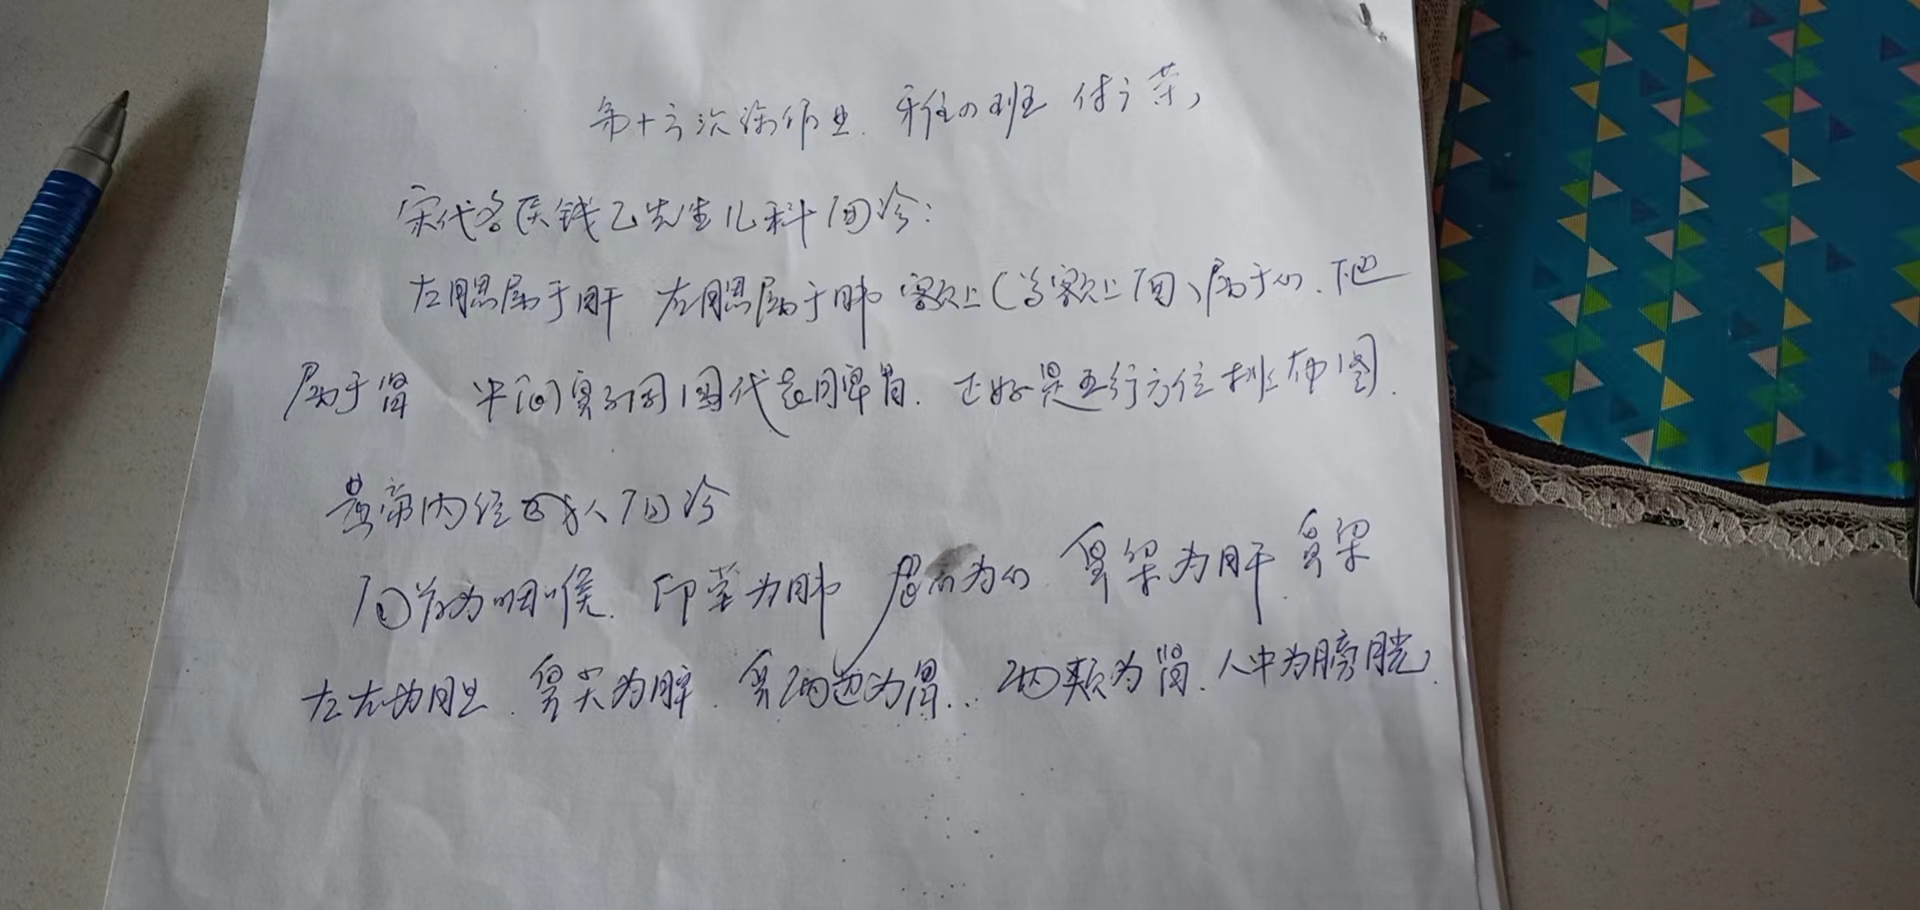 第十六次课作业. 班
宋代名医钱乙先生儿科面诊:
左腮属于肝 右腮属于肺 额上(当额上面)属于心、下巴
属于肾 中间鼻子周围代表脾胃. 正好是五行方位排布图.
黄帝内经成人面诊
面首为咽喉. 印堂为肺 为心 鼻梁为肝 鼻梁
左右为胆. 鼻尖为脾. 鼻两边为胃.. 两颊为肾. 人中为膀胱.